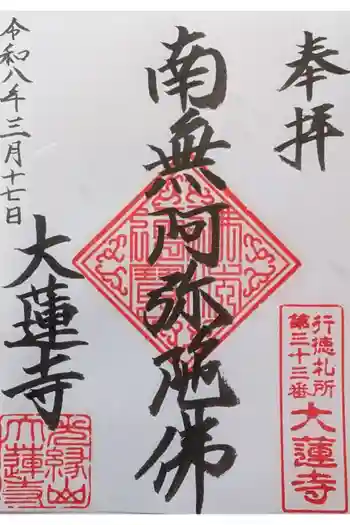 奉拝
行徳札所
第三十三番
大蓮寺
南無阿弥陀佛
大蓮寺
令和八年三月十七日
大蓮寺